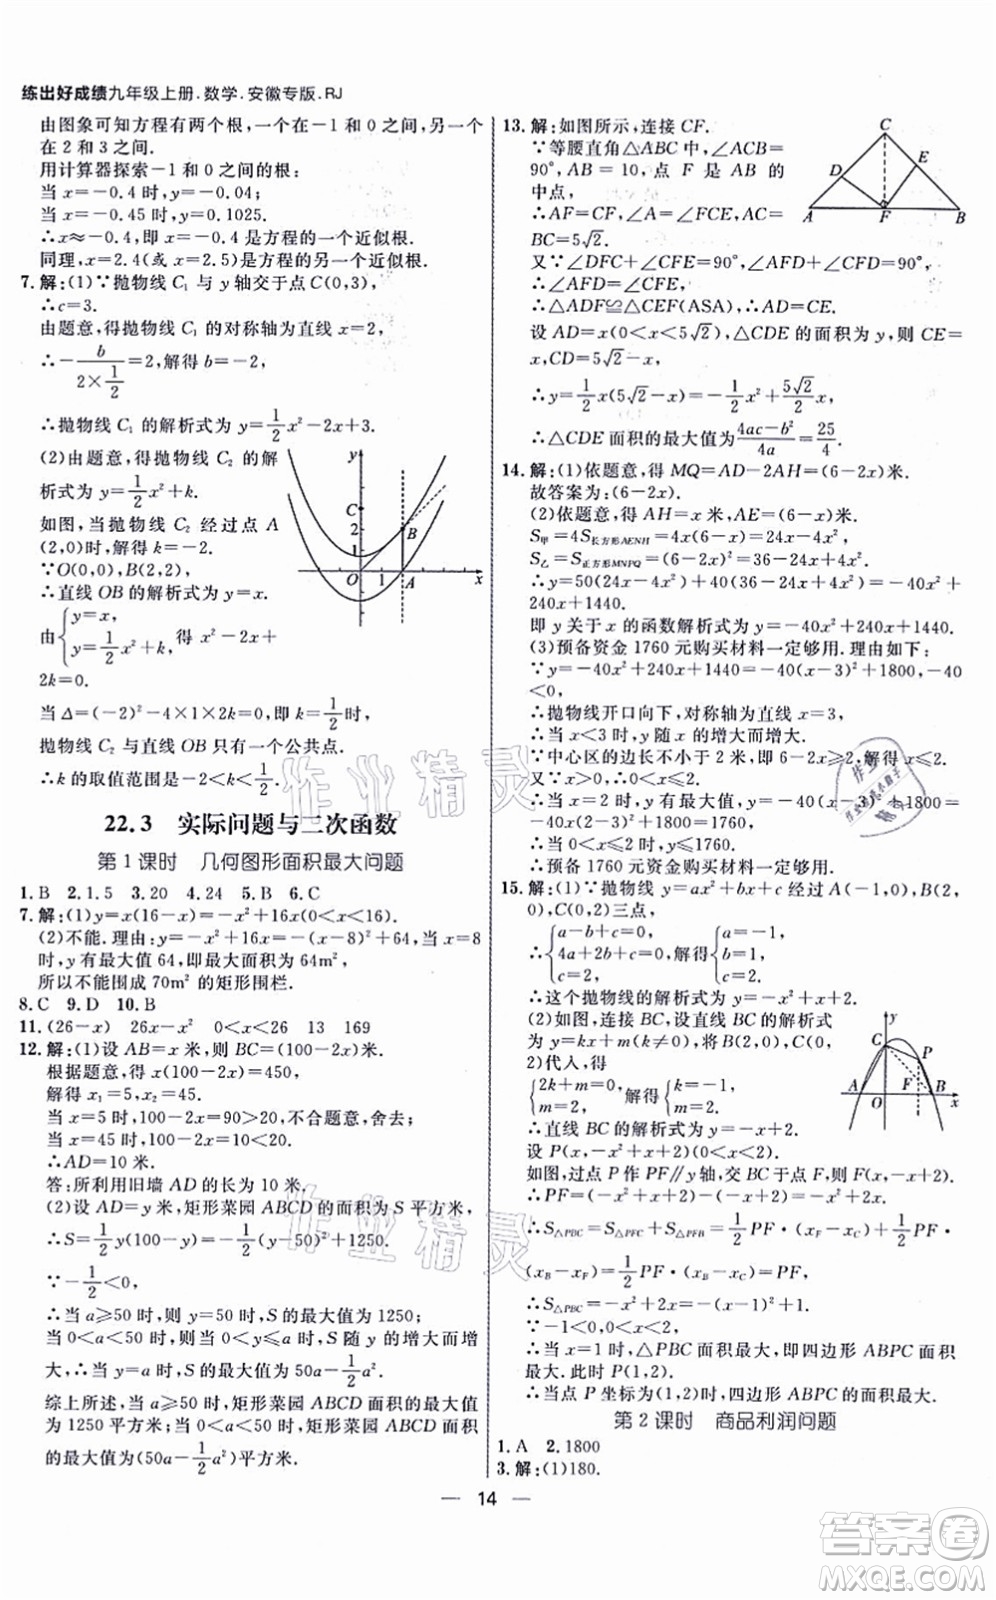 练出好成绩九年级上册.数学.安徽专版.RJ
由图象可知方程有两个根,一个在-1和0之间,另一个
在2和3之间.
用计算器探索-1和0之间的根:
当x=-0.4时,y=-0.04;
当x=-0.45时,y=0.1025.
∴x≈-0.4,即x=-0.4是方程的一个近似根.
同理,x=2.4(或x=2.5)是方程的另一个近似根.
7.解:(1)∵抛物线C₁与y轴交于点C(0,3),
∴c=3.
由题意,得抛物线C₁的对称轴为直线x=2,
∴-b/(2×1/2)=2,解得b=-2.
∴抛物线C₁的解析式为y=1/2x²-2x+3.
(2)由题意,得抛物线C₂的解
析式为y=1/2x²+k.
如图,当抛物线C₂经过点A
(2,0)时,解得k=-2.
∵O(0,0),B(2,2),
∴直线OB的解析式为y=x.
由{y=x, y=1/2x²+k, 得x²-2x+
2k=0.
当Δ=(-2)²-4×1×2k=0,即k=1/2时,
抛物线C₂与直线OB只有一个公共点.
∴k的取值范围是-2<k<1/2.
y C 2 1 B O 1 A x
22.3 实际问题与二次函数
第1课时 几何图形面积最大问题
1.B 2.1.5 3.20 4.24 5.B 6.C
7.解:(1)y=x(16-x)=-x²+16x(0<x<16).
(2)不能.理由:y=-x²+16x=-(x-8)²+64,当x=8
时,y有最大值64,即最大面积为64m²,
所以不能围成70m²的矩形围栏.
8.C 9.D 10.B
11.(26-x) 26x-x² 0<x<26 13 169
12.解:(1)设AB=x米,则BC=(100-2x)米.
根据题意,得x(100-2x)=450,
解得x₁=5,x₂=45.
当x=5时,100-2x=90>20,不合题意,舍去;
当x=45时,100-2x=10<20.
∴AD=10米.
答:所利用旧墙AD的长为10米.
(2)设AD=y米,矩形菜园ABCD的面积为S平方米,
∴S=1/2y(100-y)=-1/2(y-50)²+1250.
∵-1/2<0,
∴当a≥50时,则y=50时,S的最大值为1250;
当0<a<50时,则当0<y≤a时,S随y的增大而增大,
当y=a时,S的最大值为50a-1/2a².
综上所述,当a≥50时,矩形菜园ABCD面积的最大值
为1250平方米;当0<a<50时,矩形菜园ABCD面积
的最大值为(50a-1/2a²)平方米.
13.解:如图所示,连接CF.
∵等腰直角△ABC中,∠ACB=
90°,AB=10,点F是AB的
中点,
∴AF=CF,∠A=∠FCE,AC=
BC=5√2.
C D E A F B
又∵∠DFC+∠CFE=90°,∠AFD+∠CFD=90°,
∴∠AFD=∠CFE,
∴△ADF≌△CEF(ASA),∴AD=CE.
设AD=x(0<x<5√2),△CDE的面积为y,则CE=
x,CD=5√2-x,
∴y=1/2x(5√2-x)=-1/2x²+5√2/2x,
∴△CDE面积的最大值为(4ac-b²)/4a=25/4.
14.解:(1)依题意,得MQ=AD-2AH=(6-2x)米.
故答案为:(6-2x).
(2)依题意,得AH=x米,AE=(6-x)米.
S甲=4S长方形AENH=4x(6-x)=24x-4x²,
S乙=S正方形MNPQ=(6-2x)²=36-24x+4x²,
∴y=50(24x-4x²)+40(36-24x+4x²)=-40x²+
240x+1440.
即y关于x的函数解析式为y=-40x²+240x+1440.
(3)预备资金1760元购买材料一定够用.理由如下:
∵y=-40x²+240x+1440=-40(x-3)²+1800,
∵-40<0,
∴抛物线开口向下,对称轴为直线x=3,
∴当x<3时,y随x的增大而增大.
∵中心区的边长不小于2米,即6-2x≥2,解得x≤2.
又∵x>0,∴0<x≤2.
∴当x=2时,y=-40(x-3)²+1800=-40+1800=
1760,
∴当0<x≤2时,y≤1760,
∴预备资金1760元购买材料一定够用.
15.解:(1)∵抛物线y=ax²+bx+c过A(-1,0),B(2,
0),C(0,2)三点,
∴{a-b+c=0, 4a+2b+c=0, c=2, 解得{a=-1, b=1, c=2.
∴这个抛物线的解析式为y=-x²+x+2.
(2)如图,连接BC,设直线BC的解析式
为y=kx+m(k≠0),将B(2,0),C(0,
2)代入,得
{2k+m=0, m=2, 解得{k=-1, m=2.
∴直线BC的解析式为y=-x+2.
设P(x,-x²+x+2)(0<x<2),
如图,过点P作PF∥y轴,交BC于点F,则F(x,-x+2).
y C P F A O B x
∴PF=(-x²+x+2)-(-x+2)=-x²+2x,
∴S△PBC=S△PFC+S△PFB=1/2PF·(xF-xC)+1/2PF·
(xB-xF)=1/2PF·(xB-xC)=1/2PF·2=PF,
∴S△PBC=-x²+2x=-(x-1)²+1.
∵-1<0,0<x<2,
∴当x=1时,△PBC面积最大,即四边形ABPC面积
最大.此时P(1,2).
∴当点P坐标为(1,2)时,四边形ABPC的面积最大.
第2课时 商品利润问题
1.A 2.1800
3.解:(1)180.
— 14 —
作业精灵
作业精灵
答案卷
MXQE.COM